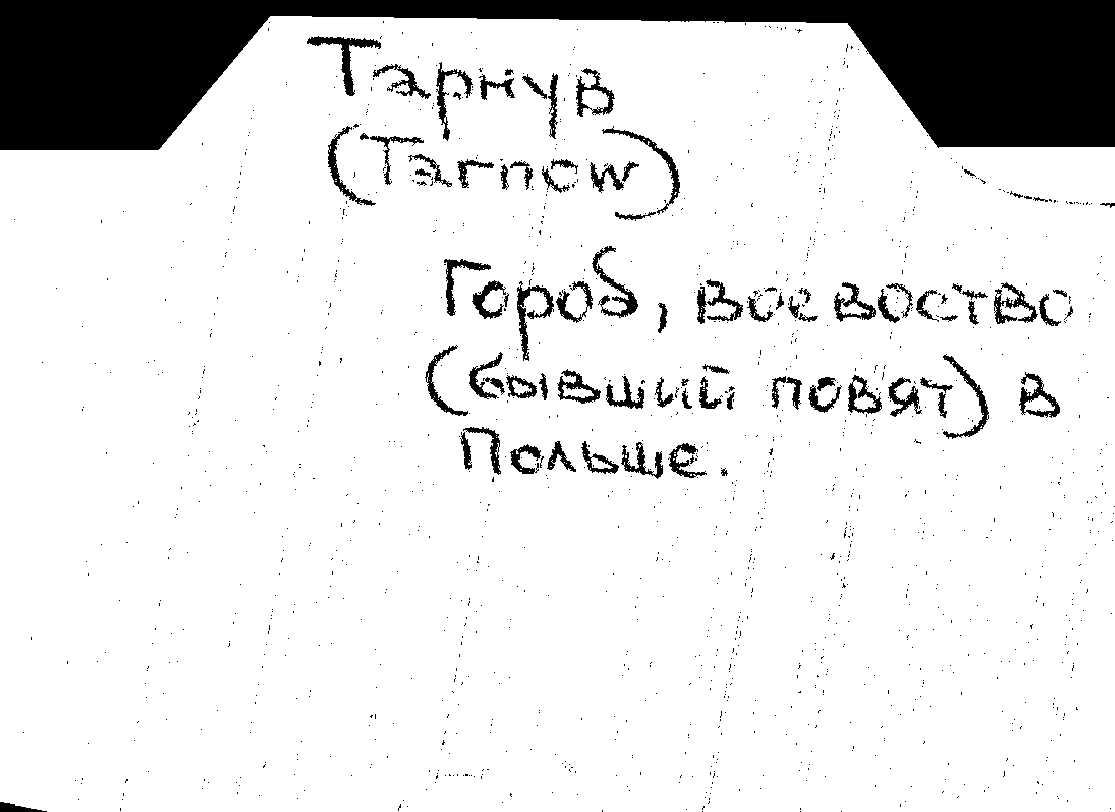 Тарнув
(Tarnow)
Город, воевоство
(бывший повят) в
Польше.